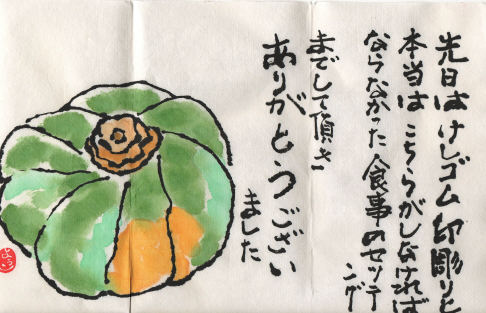 先日はけしゴム印彫りと
本当はこちらがしなければ
ならなかった食事のセッテ
ィング
までして頂き
ありがとうござい
ました